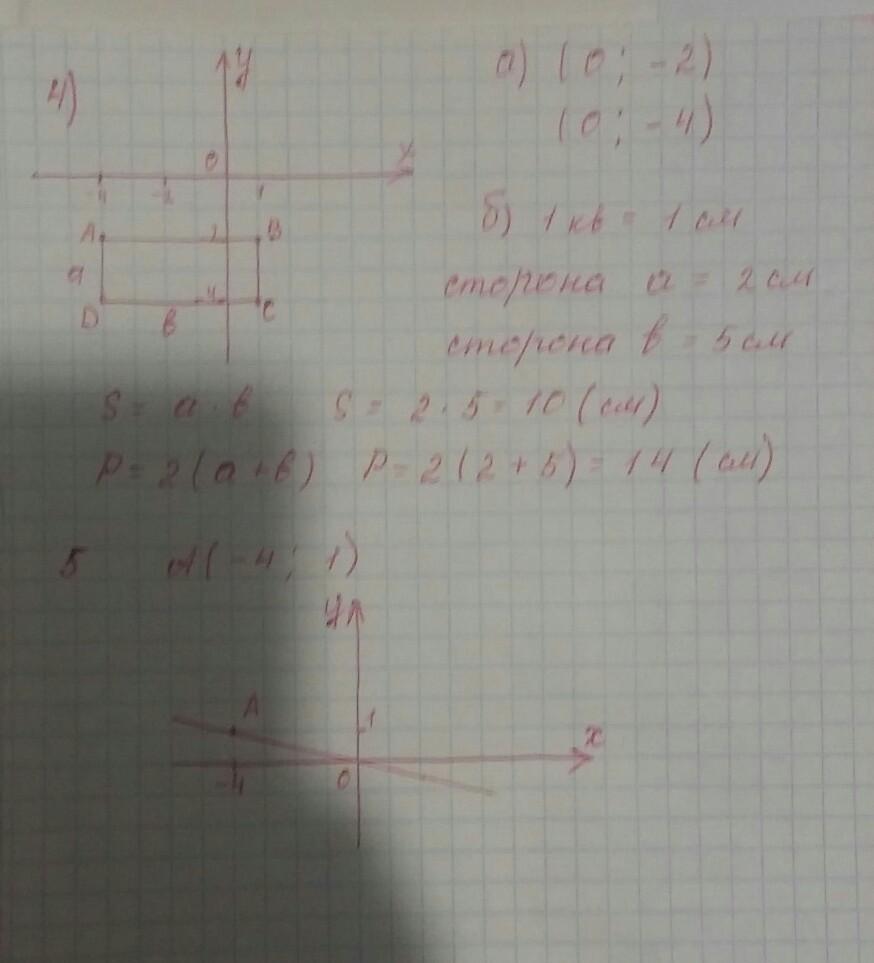 4)
y
x
0
-4 -2 1
A -2 B
a
D -4 C
в
а) (0; -2)
(0; -4)
б) 1 кв = 1 см
сторона a = 2 см
сторона в = 5 см
S = a · в S = 2 · 5 = 10 (см)
P = 2(a + в) P = 2(2 + 5) = 14 (см)
5 A(-4; 1)
y
A
1
x
-4 0